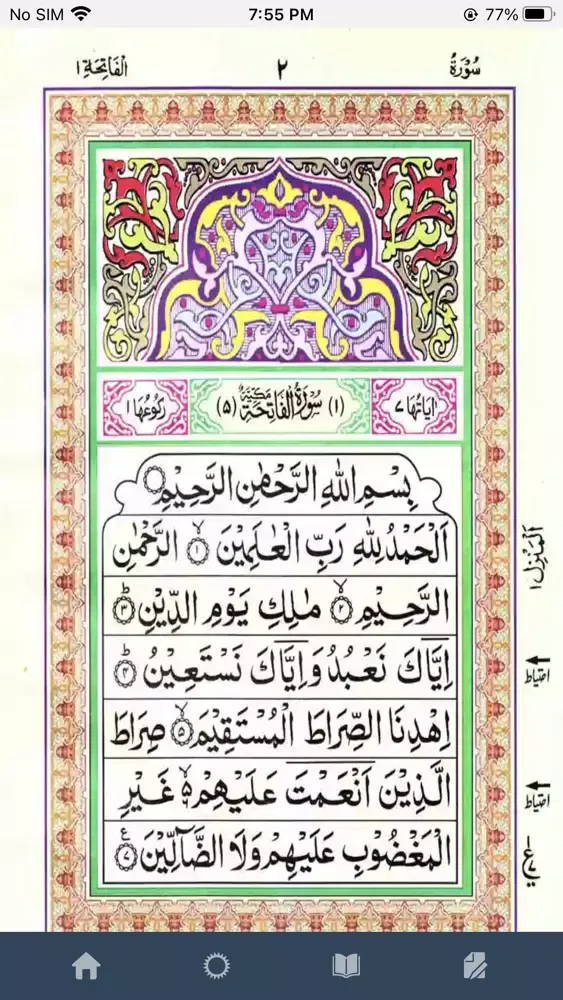 No SIM 7:55 PM 77%
سُوْرَةُ ٢ اَلْفَاتِحَةِ ١
اٰيَاتُهَا ٧ (١) سُوْرَةُ الْفَاتِحَةِ مَكِّيَّةٌ (٥) رُكُوْعُهَا ١
بِسْمِ اللّٰهِ الرَّحْمٰنِ الرَّحِيْمِ
اَلْحَمْدُ لِلّٰهِ رَبِّ الْعٰلَمِيْنَ ۙ‏﴿۱﴾ الرَّحْمٰنِ
الرَّحِيْمِ ۙ‏﴿۲﴾ مٰلِكِ يَوْمِ الدِّيْنِ ؕ‏﴿۳﴾
اِيَّاكَ نَعْبُدُ وَاِيَّاكَ نَسْتَعِيْنُ ؕ‏﴿۴﴾
اِهْدِنَا الصِّرَاطَ الْمُسْتَقِيْمَ ۙ‏﴿۵﴾ صِرَاطَ
الَّذِيْنَ اَنْعَمْتَ عَلَيْهِمْ ۙ۬ۦ غَيْرِ
الْمَغْضُوْبِ عَلَيْهِمْ وَلَا الضَّآلِّيْنَ ﴿۷﴾ ع
اَلْمَنْزِل ١
احتیاط
احتیاط